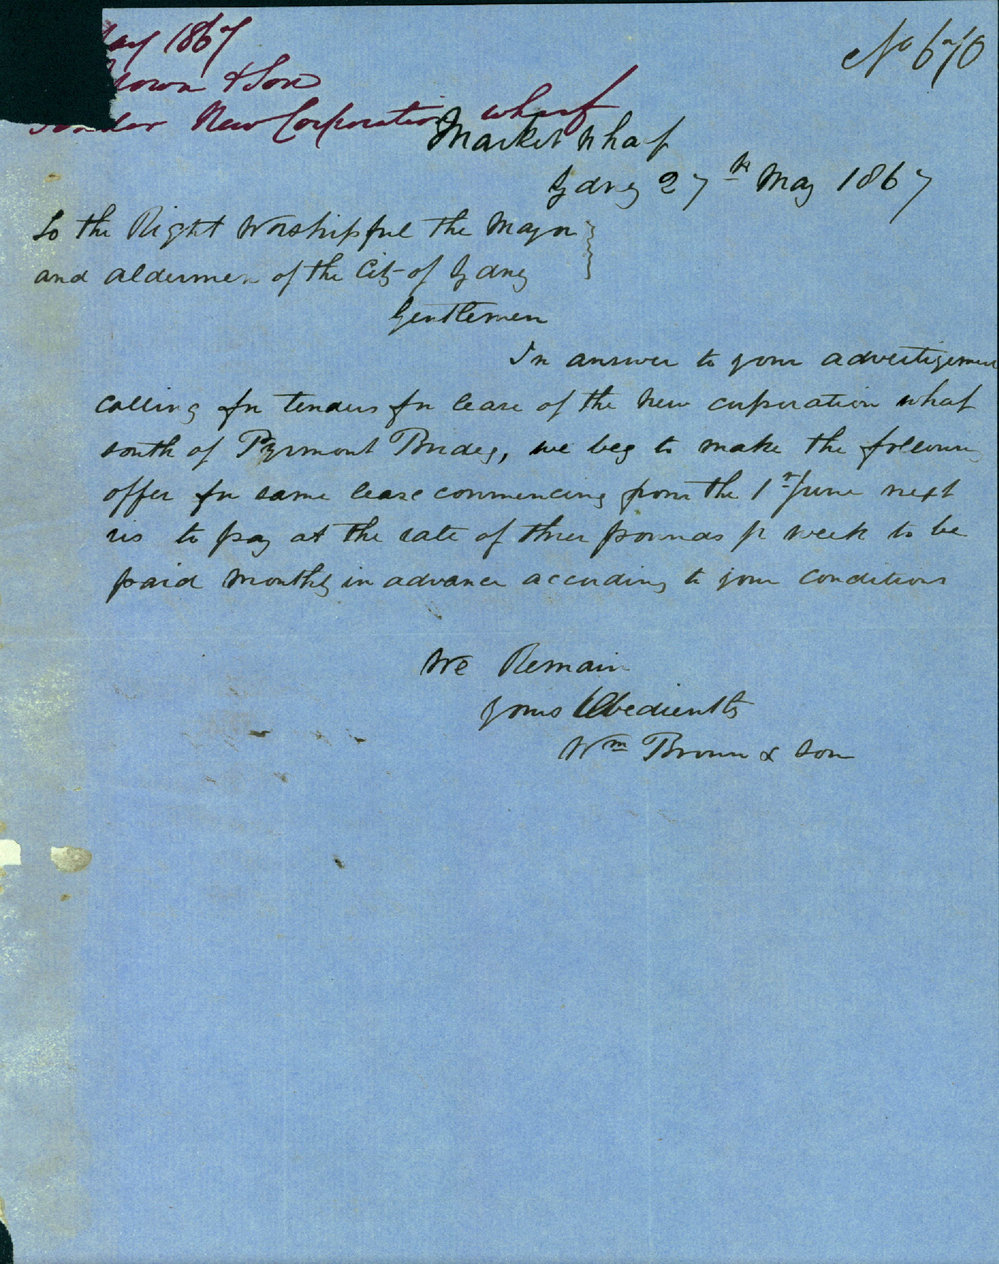 May 1867
No 670
Brown & Son
Tender New Corporation Wharf
Market Wharf
Sydney 27th May 1867
To the Right Worshipful the Mayor
and aldermen of the City of Sydney
Gentlemen
In answer to your advertisement
calling for tenders for lease of the New corporation wharf
south of Pyrmont Bridge, we beg to make the following
offer for same lease commencing from the 1st June next
vis to pay at the rate of three pounds pr week to be
paid monthly in advance according to your conditions
We Remain
yours Obediently
Wm Brown & Son